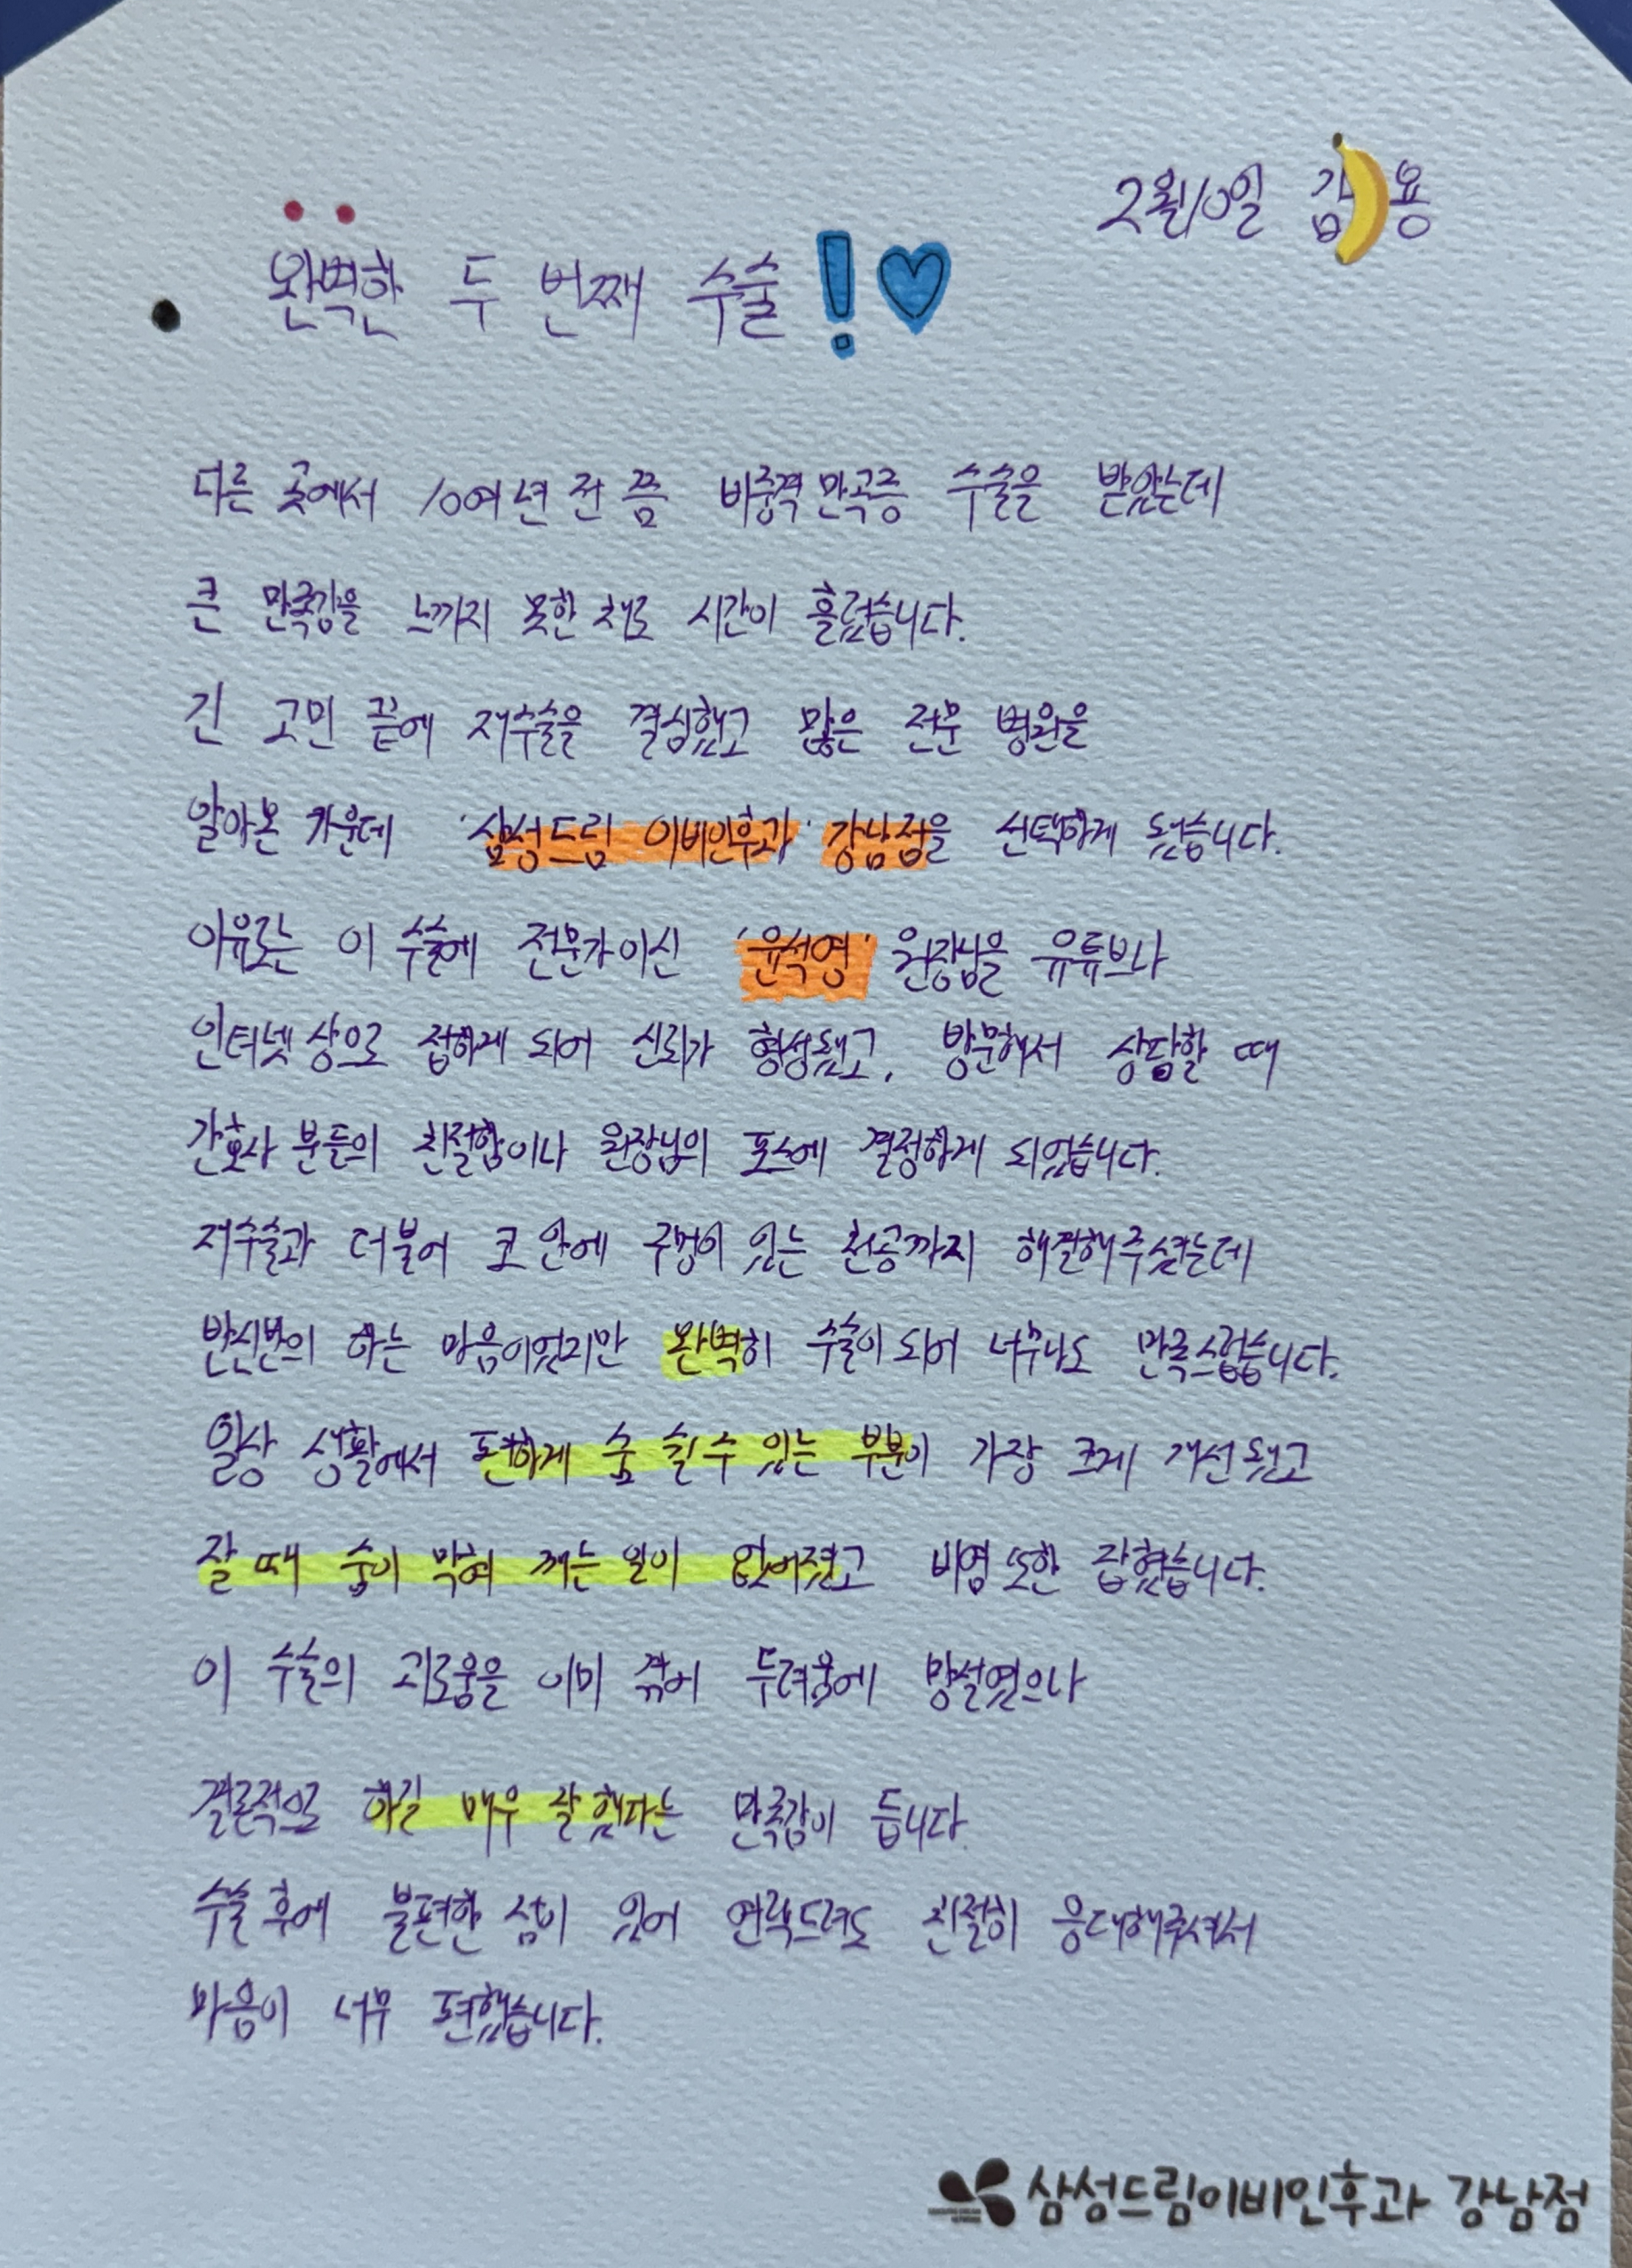 2월10일 김 용
완벽한 두 번째 수술!♡
다른 곳에서 10여년 전 쯤 비중격만곡증 수술을 받았는데
큰 만족감을 느끼지 못한 채로 시간이 흘렀습니다.
긴 고민 끝에 재수술을 결심했고 많은 전문 병원을
알아본 가운데 '삼성드림 이비인후과' 강남점을 선택하게 됐습니다.
이유로는 이 수술에 전문가이신 '윤석영' 원장님을 유튜브나
인터넷상으로 접하게 되어 신뢰가 형성됐고, 방문해서 상담할 때
간호사 분들의 친절함이나 원장님의 포스에 결정하게 되었습니다.
재수술과 더불어 코 안에 구멍이 있는 천공까지 해결해주셨는데
반신반의 하는 마음이었지만 완벽히 수술이 되어 너무나도 만족스럽습니다.
일상 생활에서 편하게 숨 쉴 수 있는 부분이 가장 크게 개선됐고
잘 때 숨이 막혀 깨는 일이 없어졌고 비염 또한 잡혔습니다.
이 수술의 괴로움을 이미 겪어 두려움에 망설였으나
결론적으로 하길 매우 잘했다는 만족감이 듭니다.
수술 후에 불편한 점이 있어 연락드려도 친절히 응대해주셔서
마음이 너무 편했습니다.
삼성드림이비인후과 강남점